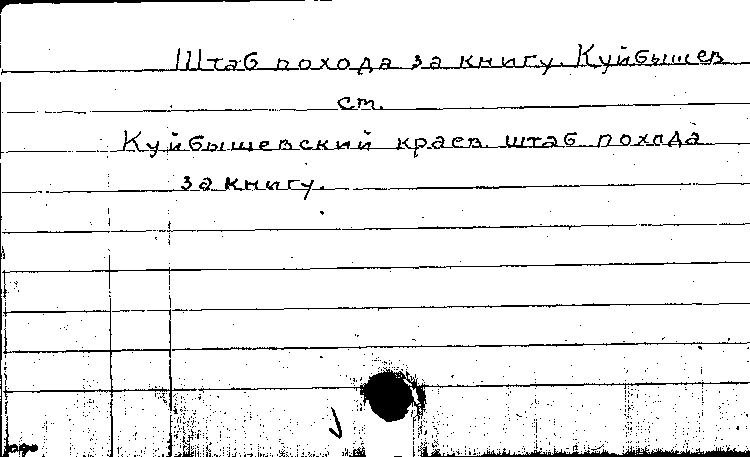 Штаб похода за книгу. Куйбышев
ст.
Куйбышевский краев. штаб похода
за книгу.